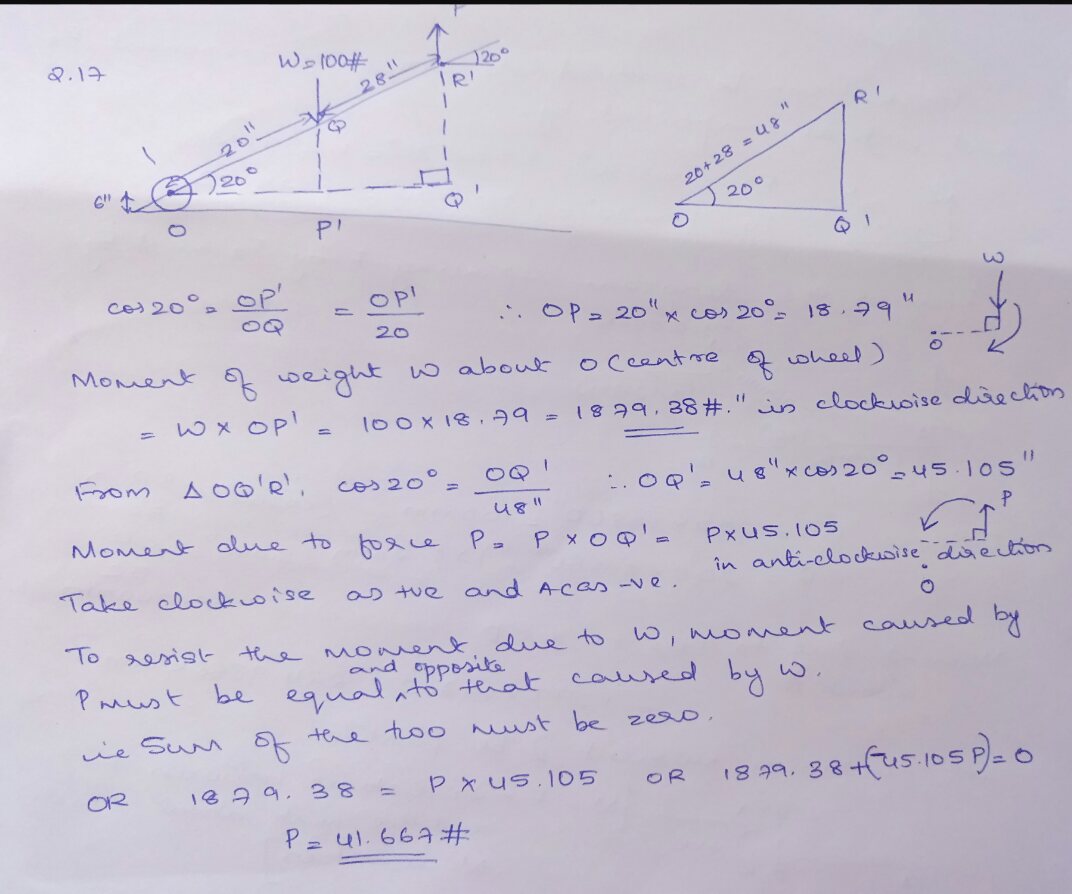 P
W=100#
Q.17
28"
20°
R'
20"
Q
20°
6"
O
P'
Q'
R'
20+28=48"
20°
O
Q'
W
cos 20° = OP'/OQ = OP'/20 ∴ OP = 20" x cos 20° = 18.79"
O
Moment of weight W about O (centre of wheel)
= W x OP' = 100 x 18.79 = 1879.38#." in clockwise direction
From ΔOQ'R', cos 20° = OQ'/48" ∴ OQ' = 48" x cos 20° = 45.105"
P
Moment due to force P = P x OQ' = P x 45.105
in anti-clockwise direction
O
Take clockwise as +ve and Acas -ve.
To resist the moment due to W, moment caused by
P must be equal and opposite to that caused by W.
ie Sum of the two must be zero.
OR 1879.38 = P x 45.105 OR 1879.38+(-45.105P)=0
P = 41.667#